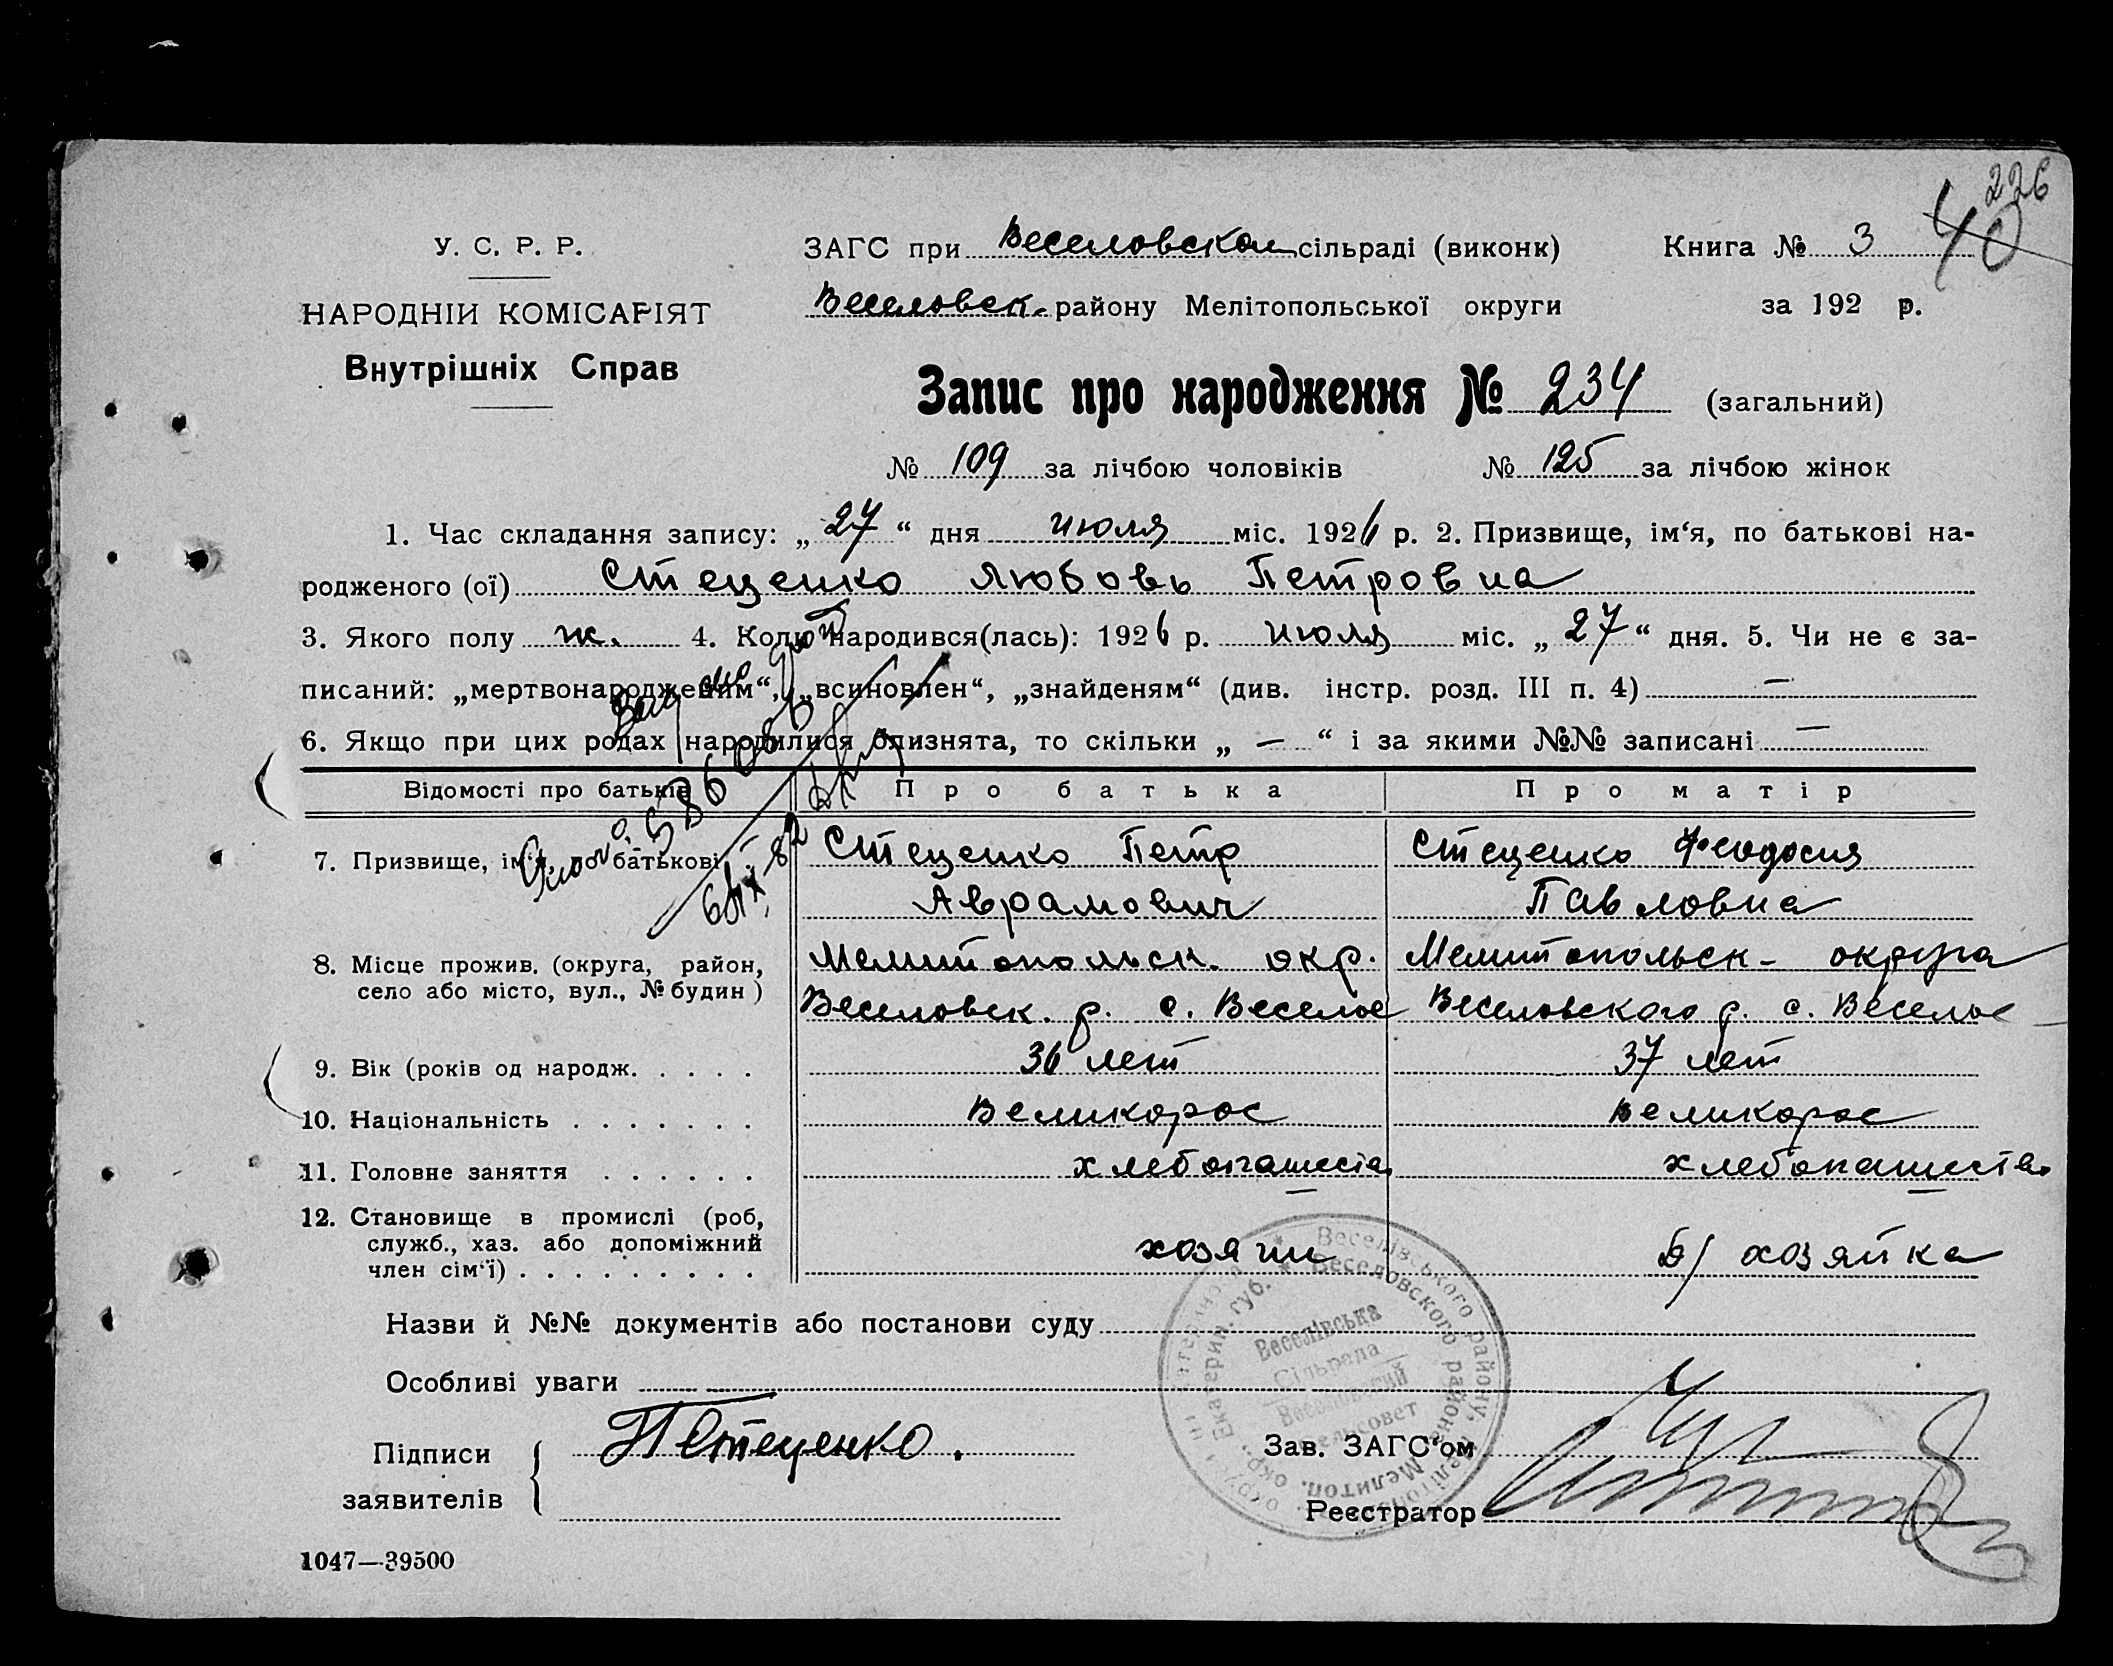 226
40
У. С. Р. Р.
НАРОДНІИ КОМІСАРІЯТ
Внутрішніх Справ
ЗАГС при Веселовском сільраді (виконк)
Веселовск. району Мелітопольської округи
Книга № 3
за 192 р.
Запис про народження № 234 (загальний)
№ 109 за лічбою чоловіків № 125 за лічбою жінок
1. Час складання запису: „ 27 “ дня июля міс. 1926 р. 2. Призвище, ім‘я, по батькові на-
родженого (ої) Стеценко Любовь Петровна
3. Якого полу ж. 4. Колю народився(лась): 1926 р. июля міс. „ 27 “ дня. 5. Чи не є за-
писаний: „мертвонародженим“, „всиновлен“, „знайденям“ (див. інстр. розд. III п. 4) —
6. Якщо при цих родах народилися близнята, то скільки „ — “ і за якими №№ записані —
Відомості про батьків Про батька Про матір
7. Призвище, ім‘я, по батькові Стеценко Петр Стеценко Феодосия
Аврамович Павловна
8. Місце прожив. (округа, район, Мелитопольск. окр. Мелитопольск- округа
село або місто, вул., № будин ) Веселовск. р. с. Веселое Веселовского р. с. Веселое
9. Вік (років од народж. . . . . 36 лет 37 лет
10. Національність . . . . . . . Великорос великорос
11. Головне заняття . . . . . . хлебопашеств. хлебопашеств.
12. Становище в промислі (роб,
служб., хаз. або допоміжний хозяин д/ хозяйка
член сім‘ї) . . . . . . . . .
Назви й №№ документів або постанови суду
Особливі уваги
Підписи
заявителів
ПСтеценко.
Зав. ЗАГС‘ом
Реєстратор
Веселівського району
Веселовского района
Екатерин. губ.
Мелитоп. окр.
Веселівська
Сільрада
Веселовский
Сельсовет
1047—39500